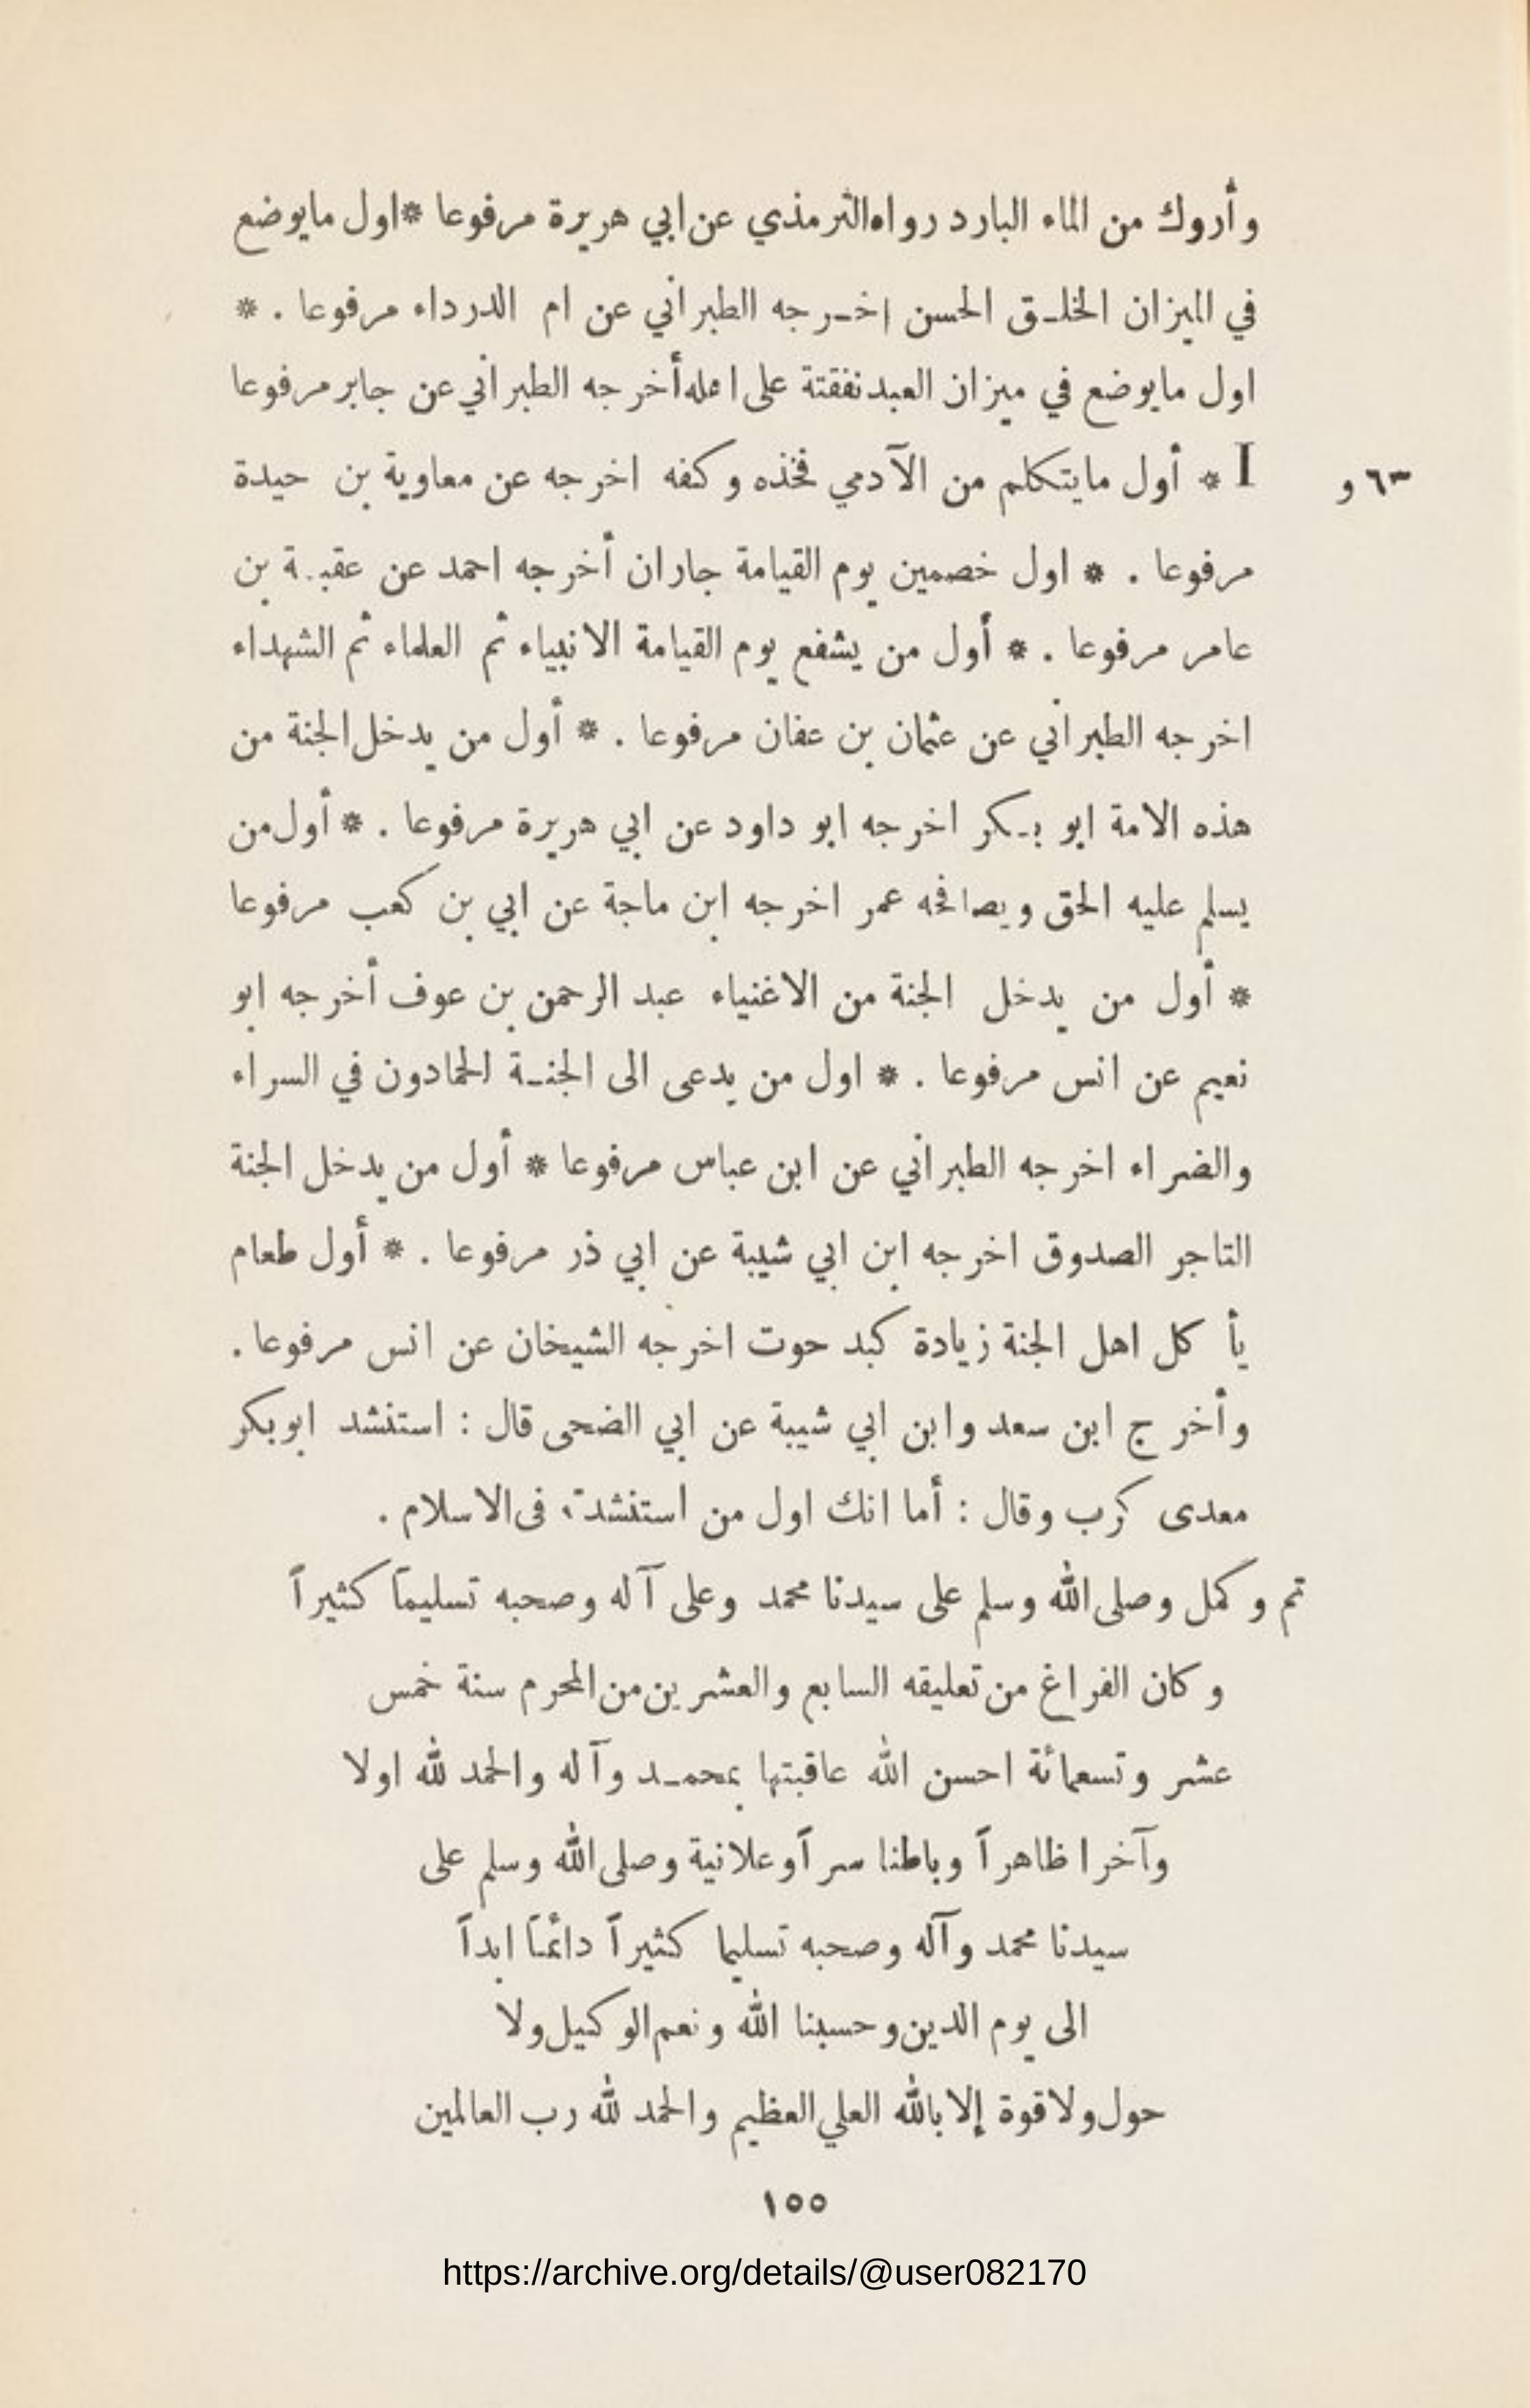 وأروك من الماء البارد رواه الترمذي عن ابي هريرة مرفوعا * اول مايوضع
في الميزان الخلـق الحسن اخـرجه الطبراني عن ام الدرداء مرفوعا . *
اول مايوضع في ميزان العبد نفقتة على اهله أخرجه الطبراني عن جابر مرفوعا
٦٣ و I * أول مايتكلم من الآدمي فخذه وكفه اخرجه عن معاوية بن حيدة
مرفوعا . * اول خصمين يوم القيامة جاران أخرجه احمد عن عقبـة بن
عامر مرفوعا . * أول من يشفع يوم القيامة الانبياء ثم العلماء ثم الشهداء
اخرجه الطبراني عن عثمان بن عفان مرفوعا . * أول من يدخل الجنة من
هذه الامة ابو بـكر اخرجه ابو داود عن ابي هريرة مرفوعا . * أول من
يسلم عليه الحق ويصافحه عمر اخرجه ابن ماجة عن ابي بن كعب مرفوعا
* أول من يدخل الجنة من الاغنياء عبد الرحمن بن عوف أخرجه ابو
نعيم عن انس مرفوعا . * اول من يدعى الى الجنـة الحمادون في السراء
والضراء اخرجه الطبراني عن ابن عباس مرفوعا * أول من يدخل الجنة
التاجر الصدوق اخرجه ابن ابي شيبة عن ابي ذر مرفوعا . * أول طعام
يأكل اهل الجنة زيادة كبد حوت اخرجه الشيخان عن انس مرفوعا .
وأخرج ابن سعد وابن ابي شيبة عن ابي الضحى قال : استنشد ابوبكر
معدى كرب وقال : أما انك اول من استنشدته فى الاسلام .
تم وكمل وصلى الله وسلم على سيدنا محمد وعلى آله وصحبه تسليماً كثيراً
وكان الفراغ من تعليقه السابع والعشرين من المحرم سنة خمس
عشر وتسعمائة احسن الله عاقبتها بمحمـد وآله والحمد لله اولا
وآخرا ظاهراً وباطنا سراً وعلانية وصلى الله وسلم على
سيدنا محمد وآله وصحبه تسليما كثيراً دائماً ابداً
الى يوم الدين وحسبنا الله ونعم الوكيل ولا
حول ولا قوة إلا بالله العلي العظيم والحمد لله رب العالمين
١٥٥
https://archive.org/details/@user082170